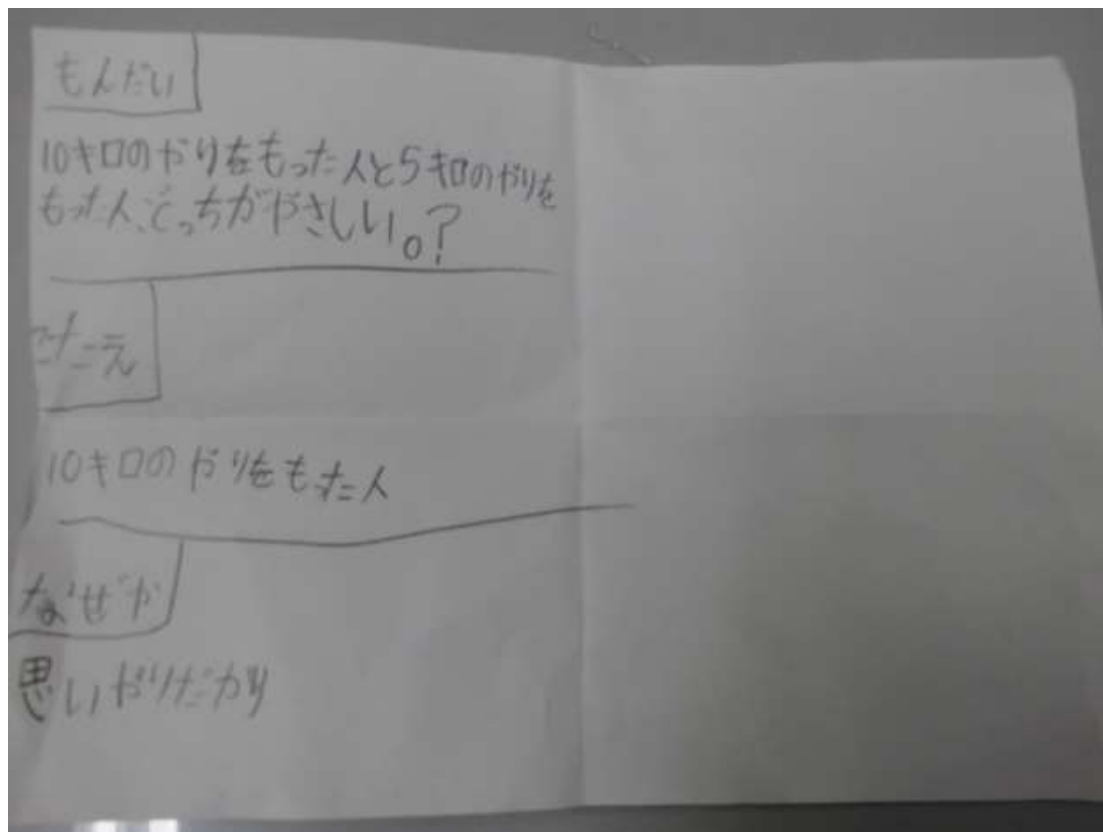 もんだい
10キロのやりをもった人と5キロのやりを
もった人、どっちがやさしい。?
こたえ
10キロのやりをもった人
なぜか
思いやりだから